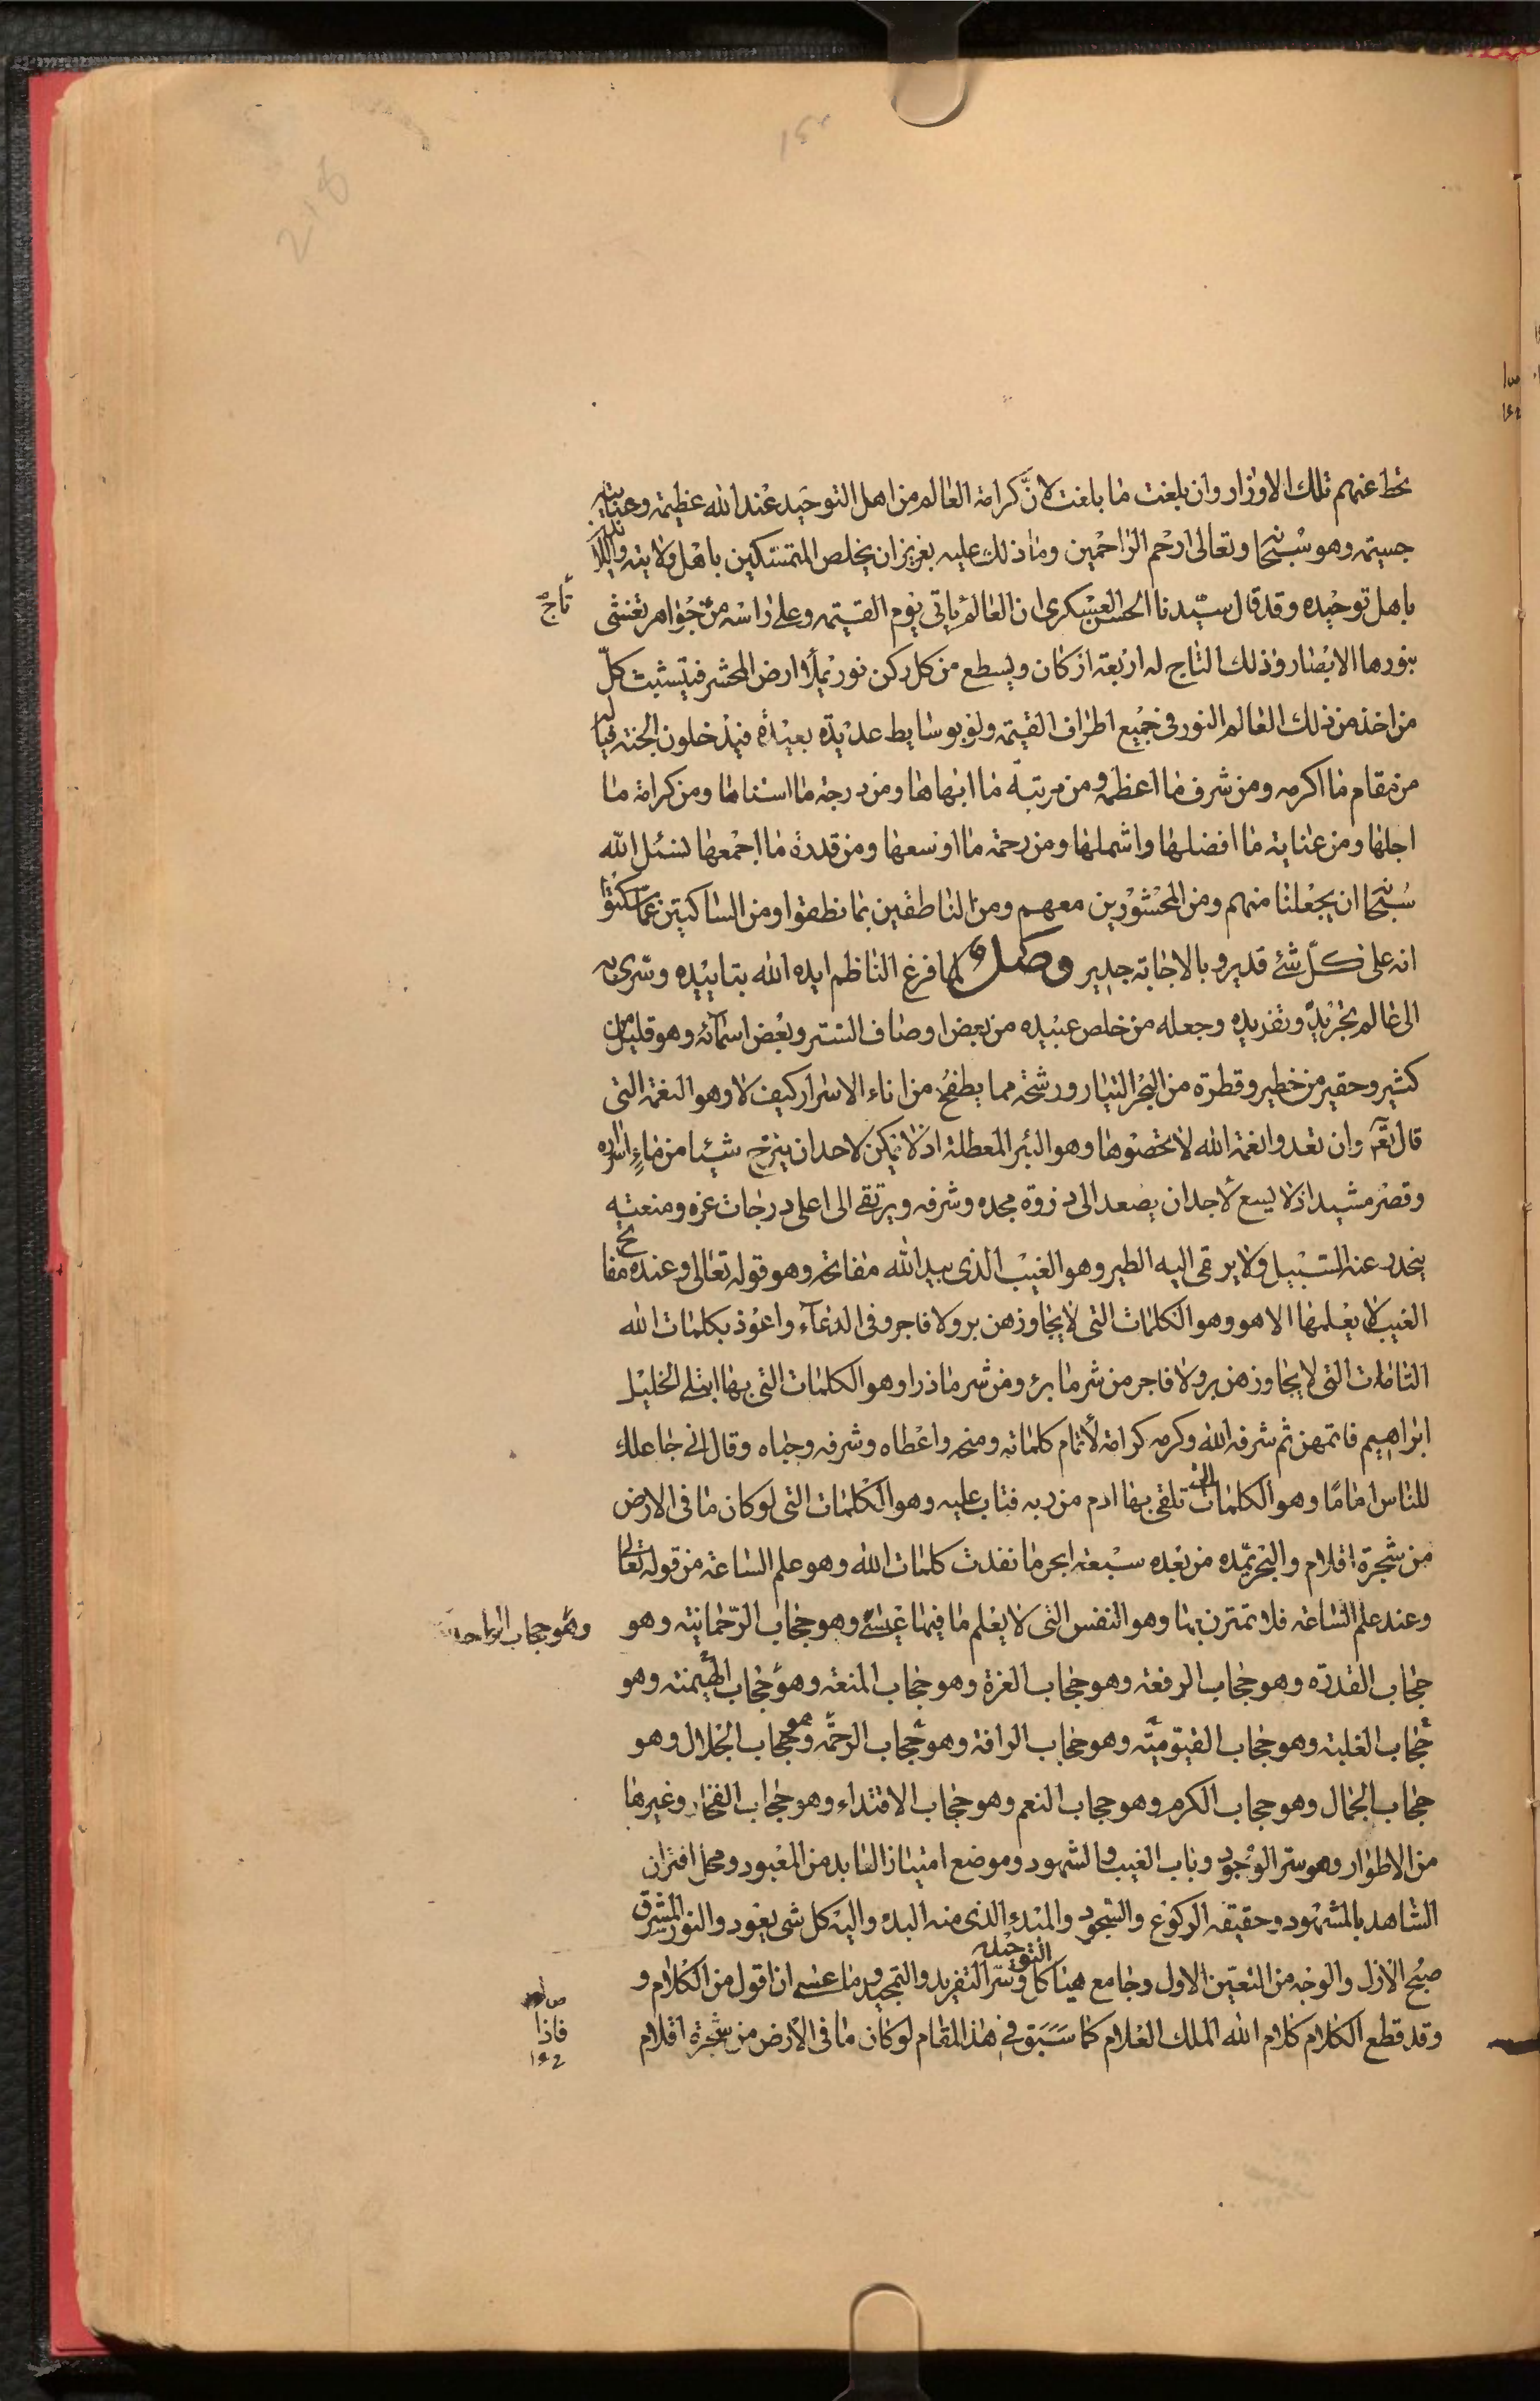 يحط عنهم تلك الاوزار وان بلغت ما بلغت لانّ كرامة العالم من اهل التوحيد عند الله عظيمة وعنايته
جسيمة وهو سبحانه وتعالى ارحم الراحمين وما ذلك عليه بعزيز ان يخلص المتمسكين باهل ولايته
باهل توحيده وقد قال سيّدنا الحسن العسكرى ان العالم ياتى يوم القيمة وعلى راسه من جواهر تغشى
تاج
بنورها الابصار وذلك التاج له اربعة اركان ويسطع من كل ركن نور يملأ ارض المحشر فيتشبث كلّ
من اخذ من ذلك العالم النور فى جميع اطراف القيمة ولو بوسايط عديدة بعيدة فيدخلون الجنة فياله
من مقام ما اكرمه ومن شرف ما اعظمه ومن مرتبة ما ابهاها ومن درجة ما اسناها ومن كرامة ما
اجلها ومن عناية ما افضلها واشملها ومن رحمة ما اوسعها ومن قدرة ما اجمعها لنسئل الله
سبحانه ان يجعلنا منهم ومن المحشورين معهم ومن الناطقين بما نطقوا ومن الساكتين عمّا سكتوا
انه على كلّ شئ قدير وبالاجابة جدير وصل ولما فرغ الناظم ايده الله بتاييده وسرى به
الى عالم تجريده وتفريده وجعله من خلص عبيده من بعض اوصاف الستر وبعض اسمآئه وهو قليل من
كثير وحقير من خطير وقطرة من البحر التيار ورشحة مما يطفح من اناء الاسرار كيف لا وهو النعمة التى
قال تعّم وان تعدوا نعمة الله لا تحصوها وهو البئر المعطلة اذ لا يمكن لاحد ان ينزح شيئا من ماء اسراره
وقصر مشيد اذ لا يسع لاحد ان يصعد الى ذروة مجده وشرفه ويرتقى الى اعلى درجات عزه ومنعته
ينحدر عنه السبيل ولا يرقى اليه الطير وهو الغيب الذى بيد الله مفاتحه وهو قوله تعالى وعنده مفاتح
الغيب لا يعلمها الا هو وهو الكلمات التى لا يجاوزهن بر ولا فاجر وفى الدعآء واعوذ بكلمات الله
التامات التى لا يجاوزهن بر ولا فاجر من شر ما برء ومن شر ما ذرا وهو الكلمات التى بها ابتلى الخليل
ابراهيم فاتمهن ثم شرفه الله وكرمه كرامة لأتمام كلماته ومنحه واعطاه وشرفه وحباه وقال انى جاعلك
للناس اماما وهو الكلمات التى تلقى بها ادم من ربه فتاب عليه وهو الكلمات التى لو كان ما فى الارض
من شجرة اقلام والبحر يمّده من بعده سبعة ابحر ما نفدت كلمات الله وهو علم الساعة من قوله تعالى
وعند علم الساعة فلا تمترن بها وهو النفس التى لا يعلم ما فيها عيسى وهو حجاب الرّحمانية وهو
وهو حجاب
حجاب القدرة وهو حجاب الرفعة وهو حجاب العزة وهو حجاب المنعة وهو حجاب الهيمنة وهو
حجاب الغلبة وهو حجاب القيّوميّة وهو حجاب الرافة وهو حجاب الرحمة وهو حجاب الجلال وهو
حجاب الجمال وهو حجاب الكرم وهو حجاب النعم وهو حجاب الاقتداء وهو حجاب الفخار وغيرها
من الاطوار وهو ستر الوجود وباب الغيب والشهود وموضع امتياز العابد من المعبود ومحل اقتران
الشاهد بالمشهود وحقيقة الركوع والسجود والمبدء الذى منه البدء واليه كل شى يعود والنور المشرق
صبح الازل والوجه من التعيّن الاول وجامع هياكل التوحيد وسّر التفريد والتمجيد وما عسى ان اقول من الكلام و
وقد قطع الكلام كلام الله الملك العلام كما سَبَق فى هذا المقام لو كان ما فى الأرض من شجرة اقلام
فاذا